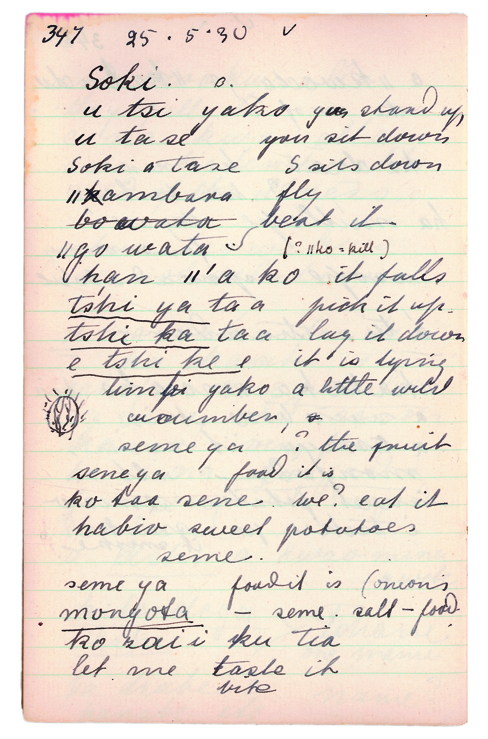 347 25.5.30 v
Soki. o.
u tsi yako you stand up,
u ta se you sit down
Soki a tase S sits down
ǁkambara fly
bo wata beat it
ǁgo wata [? ǁko = kill]
han ǁ'a ko it falls
tshi ya ta a pick it up.
tshi ka taa lay it down
e tshi ke e it is lying
yako a little wild
cucumber,
seme ya ? the fruit
seneya food it is
ko taa sene. we? eat it
habio sweet potatoes
seme.
seme ya food it is (onions
mongota – seme. salt – food
ko zai i ku tia
let me taste it